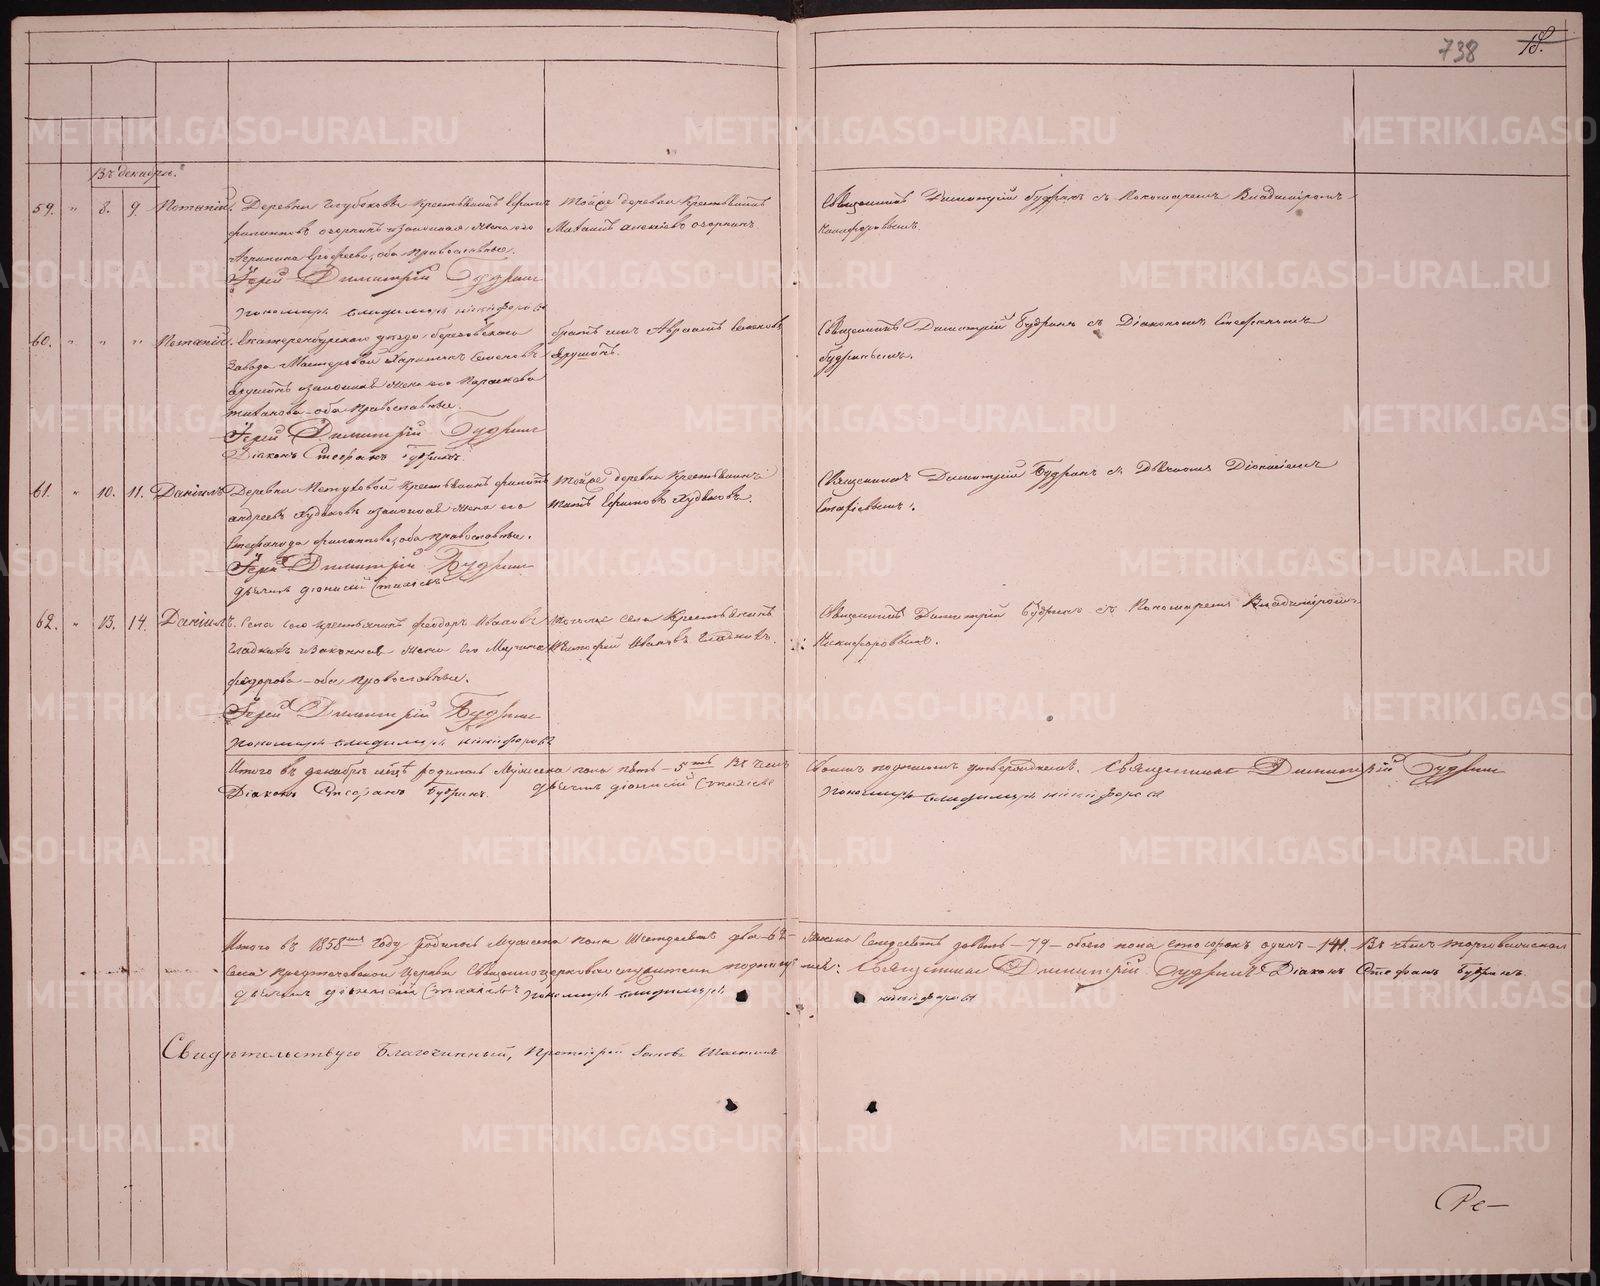 738 18.
Въ декабрѣ.
59. " 8. 9. Потапій. Деревни Глубоковы крестьянинъ Ефимъ
филипповъ озорнинъ и законная жена его
Агрипина Ерофеева, оба православные.
Іерей Димитрій Будринъ
Пономарь Владимиръ Никифоровъ
Тойже деревни крестьянинъ
алексѣевъ озорнинъ.
Священникъ Димитрій Будринъ съ Пономаремъ Владиміромъ
Никифоровымъ.
60. " " " Потапій. Екатеринбургскаго уѣзда березовскаго
завода Мастеровой Харитонъ Семеновъ
и законная жена его Параскева
оба православные.
Іерей Димитрій Будринъ
Діаконъ Стефанъ Будринъ.
братъ его Авраамъ Семеновъ
Священникъ Димитрій Будринъ съ Діакономъ Стефаномъ
Будринымъ.
61. " 10. 11. Даніилъ Деревни Петуховой крестьянинъ филиппъ
андреевъ Худяковъ и законная жена его
Стефанида филиппова, оба православные.
Іерей Димитрій Будринъ
Дьячекъ Діонисій
Тойже деревни крестьянинъ
Ефимовъ Худяковъ.
Священникъ Димитрій Будринъ съ Дьячкомъ Діонисіемъ
62. " 13. 14. Даніилъ. Села сего крестьянинъ феодоръ Ивановъ
Гладкихъ и законная жена его Марина
федорова оба православные.
Іерей Димитрій Будринъ
Пономарь Владимиръ Никифоровъ
села крестьянинъ
Тимофей Ивановъ Гладкихъ.
Священникъ Димитрій Будринъ съ Пономаремъ Владиміромъ
Никифоровымъ.
Итого въ декабрѣ мцѣ родилось Мужеска пола пять 5ть Въ чемъ
своимъ подписомъ утверждаемъ. Священникъ Димитрій Будринъ
Діаконъ Стефанъ Будринъ. Дьячекъ Діонисій
Пономарь Владимиръ Никифоровъ
Итого въ 1858мъ году родилось Мужеска пола Шестдесятъ два 62 Женска Семдесятъ девять 79 обоего пола сто сорокъ одинъ 141. Въ чемъ
Села Предтечевской Церкви Священноцерковнослужители Священникъ Димитрій Будринъ Діаконъ Стефанъ Будринъ.
Дьячекъ Діонисій Пономарь Владимиръ Никифоровъ
Свидѣтельствую Благочинный, Протоіерей
Ре